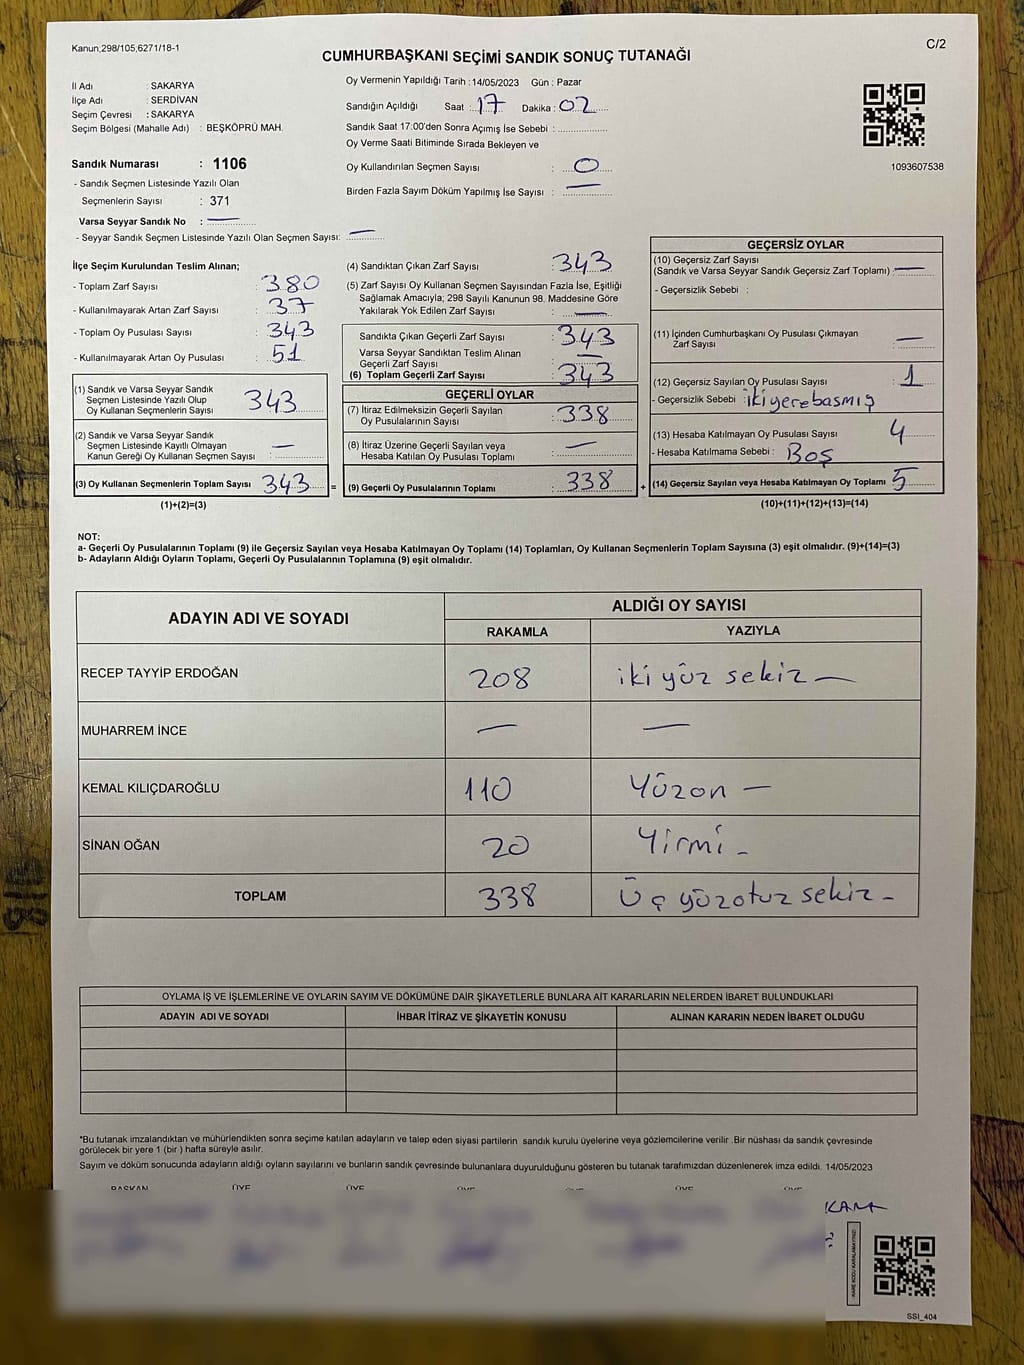 Kanun,298/105,6271/18-1
C/2
CUMHURBAŞKANI SEÇİMİ SANDIK SONUÇ TUTANAĞI
İl Adı : SAKARYA
İlçe Adı : SERDİVAN
Seçim Çevresi : SAKARYA
Seçim Bölgesi (Mahalle Adı) : BEŞKÖPRÜ MAH.
Sandık Numarası : 1106
- Sandık Seçmen Listesinde Yazılı Olan
Seçmenlerin Sayısı : 371
Varsa Seyyar Sandık No : —
- Seyyar Sandık Seçmen Listesinde Yazılı Olan Seçmen Sayısı: —
Oy Vermenin Yapıldığı Tarih : 14/05/2023 Gün : Pazar
Sandığın Açıldığı Saat : 17 Dakika : 02
Sandık Saat 17.00'den Sonra Açımış İse Sebebi :
Oy Verme Saati Bitiminde Sırada Bekleyen ve
Oy Kullandırılan Seçmen Sayısı : 0
Birden Fazla Sayım Döküm Yapılmış İse Sayısı : —
1093607538
İlçe Seçim Kurulundan Teslim Alınan;
- Toplam Zarf Sayısı : 380
- Kullanılmayarak Artan Zarf Sayısı : 37
- Toplam Oy Pusulası Sayısı : 343
- Kullanılmayarak Artan Oy Pusulası : 51
(1) Sandık ve Varsa Seyyar Sandık
Seçmen Listesinde Yazılı Olup
Oy Kullanan Seçmenlerin Sayısı 343
(2) Sandık ve Varsa Seyyar Sandık
Seçmen Listesinde Kayıtlı Olmayan
Kanun Gereği Oy Kullanan Seçmen Sayısı : —
(3) Oy Kullanan Seçmenlerin Toplam Sayısı 343
(1)+(2)=(3)
(4) Sandıktan Çıkan Zarf Sayısı : 343
(5) Zarf Sayısı Oy Kullanan Seçmen Sayısından Fazla İse, Eşitliği
Sağlamak Amacıyla; 298 Sayılı Kanunun 98. Maddesine Göre
Yakılarak Yok Edilen Zarf Sayısı : —
Sandıkta Çıkan Geçerli Zarf Sayısı : 343
Varsa Seyyar Sandıktan Teslim Alınan
Geçerli Zarf Sayısı : —
(6) Toplam Geçerli Zarf Sayısı : 343
GEÇERLİ OYLAR
(7) İtiraz Edilmeksizin Geçerli Sayılan
Oy Pusulalarının Sayısı : 338
(8) İtiraz Üzerine Geçerli Sayılan veya
Hesaba Katılan Oy Pusulası Toplamı : —
= (9) Geçerli Oy Pusulalarının Toplamı : 338
GEÇERSİZ OYLAR
(10) Geçersiz Zarf Sayısı
(Sandık ve Varsa Seyyar Sandık Geçersiz Zarf Toplamı) : —
- Geçersizlik Sebebi :
(11) İçinden Cumhurbaşkanı Oy Pusulası Çıkmayan
Zarf Sayısı : —
(12) Geçersiz Sayılan Oy Pusulası Sayısı : 1
- Geçersizlik Sebebi : iki yere basmış
(13) Hesaba Katılmayan Oy Pusulası Sayısı : 4
- Hesaba Katılmama Sebebi : Boş
+ (14) Geçersiz Sayılan veya Hesaba Katılmayan Oy Toplamı : 5
(10)+(11)+(12)+(13)=(14)
NOT:
a- Geçerli Oy Pusulalarının Toplamı (9) ile Geçersiz Sayılan veya Hesaba Katılmayan Oy Toplamı (14) Toplamları, Oy Kullanan Seçmenlerin Toplam Sayısına (3) eşit olmalıdır. (9)+(14)=(3)
b- Adayların Aldığı Oyların Toplamı, Geçerli Oy Pusulalarının Toplamına (9) eşit olmalıdır.
ADAYIN ADI VE SOYADI ALDIĞI OY SAYISI
RAKAMLA YAZIYLA
RECEP TAYYİP ERDOĞAN 208 iki yüz sekiz —
MUHARREM İNCE — —
KEMAL KILIÇDAROĞLU 110 Yüzon —
SİNAN OĞAN 20 Yirmi -
TOPLAM 338 Üç yüzotuz sekiz -
OYLAMA İŞ VE İŞLEMLERİNE VE OYLARIN SAYIM VE DÖKÜMÜNE DAİR ŞİKAYETLERLE BUNLARA AİT KARARLARIN NELERDEN İBARET BULUNDUKLARI
ADAYIN ADI VE SOYADI İHBAR İTİRAZ VE ŞİKAYETİN KONUSU ALINAN KARARIN NEDEN İBARET OLDUĞU
*Bu tutanak imzalandıktan ve mühürlendikten sonra seçime katılan adayların ve talep eden siyasi partilerin sandık kurulu üyelerine veya gözlemcilerine verilir .Bir nüshası da sandık çevresinde
görülecek bir yere 1 (bir ) hafta süreyle asılır.
Sayım ve döküm sonucunda adayların aldığı oyların sayılarını ve bunların sandık çevresinde bulunanlara duyurulduğunu gösteren bu tutanak tarafımızdan düzenlenerek imza edildi. 14/05/2023
BAŞKAN ÜYE ÜYE ÜYE ÜYE ÜYE ÜYE
KARE KODU KARALAMAYINIZ!
SSI_404